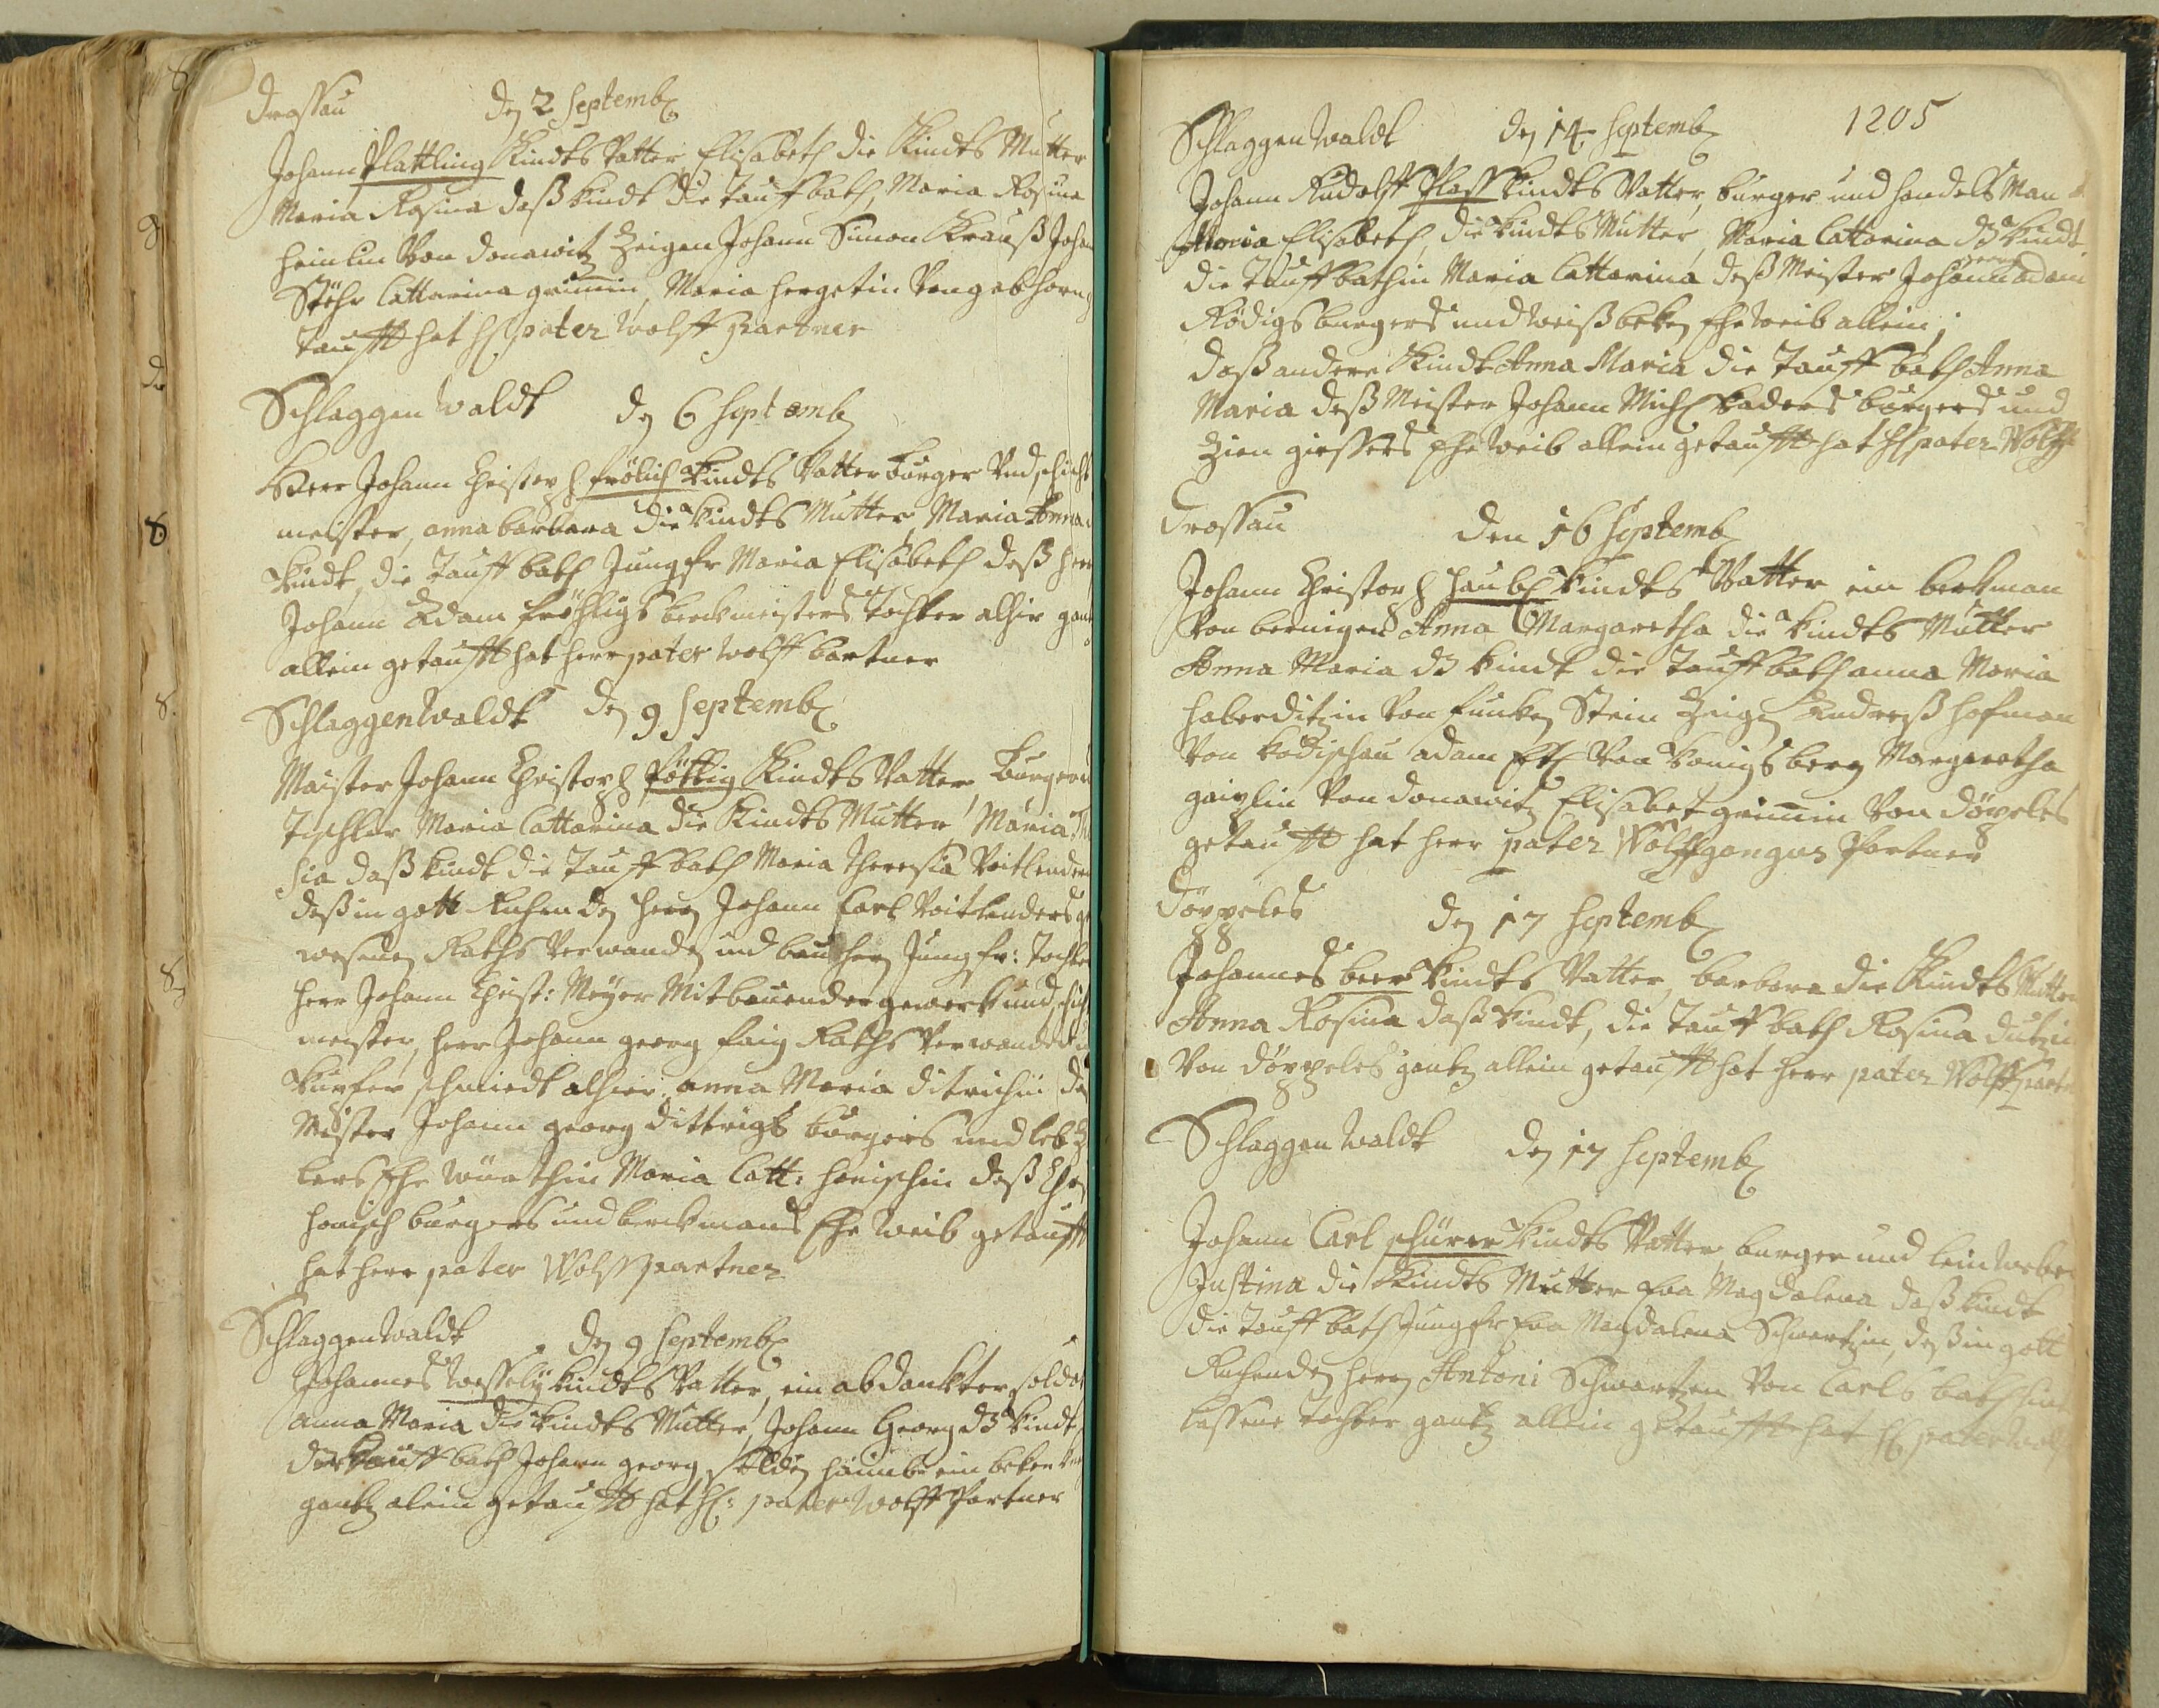 Drossau den 2 Septemb
Johann Plattling Kindts Vatter Elisabeth die Kindts Mutter
Maria Rosina daß kindt die Tauffbath, Maria Rosina
heinlin Von donawitz Zeigen Johann Simon Krauß Joha
Stöhr Cattarina grimmin, Maria hergetin
taufft hat H pater Wolff Partner
Schlaggen Waldt den 6 Septemb
Herr Johann Christoph frölich Kindts Vatter burger Vnd schicht
meister, anna barbara die Kindts Mutter, Maria Anna
Kindt, die Tauffbath Jungfr Maria Elisabeth deß herr
Johann Adam fröhligs berckmeisters Tochter alhir gan
allein getaufft hat herr pater Wolff bartner
Schlaggen Waldt den 9 Septemb
Maister Johann Christoph föttig Kindts Vatter, burger
Tischler Maria Cattarina die Kindts Mutter, Maria The
sia daß kindt die Tauffbath Maria Theresia Voitlender
deß in gott Ruhenden herrn Johann Carl Voitlenders ge
wesenen Raths Verwanden und bauherrn Jungfr: Tochter
herr Johann Christ: Meÿer Mitbauender gewerck und schicht
meister, herr Johann georg faig Raths Verwander
kupfer schmiedt alhier. anna Maria ditrichin deß
Mister Johann georg dittrigs burgers und lebz
lers Ehe würthin Maria Catt: honischin deß Chr
honisch burgers und berckmans Ehe Weib getaufft
hat herr pater Wolff partner
Schlaggen Waldt den 9 Septemb
Johannes Wesselÿ kindts Vatter, ein abdankter soldat
anna Maria die kindts Mutter, Johann Georg dz kindt,
der tauffbath Johann georg
gantz alein getaufft hat H: pater Wolff Partner
Schlaggen Waldt den 14 Septemb 1205
Johann Rudolff Plass kindts Vatter, burger und handels Man
Maria Elisabeth, die kindts Mutter, Maria Cattarina dz kindt
die Tauffbathin Maria Cattarina deß Meister Johann adam
georg
Rödigs burgers und weißbeken Ehe weib allein;
daß andere Kindt Anna Maria die Tauffbath Anna
Maria deß Meister Johann Mich baders burgers und
Zien giessers Ehe weib allein getaufft hat H pater Wolff
Drossau den 16 Septemb
Johann Christoph haubl kindts Vatter ein berkman
Von beringen Anna Margaretha die kindts Mutter
Anna Maria dz kindt die Tauffbath anna Maria
haberditzin Von funken Stein Zeigen Andreß hofman
Von kodischau adam Von Konigsberg Margaretha
gaiglin Von donawitz Elisabet grimmin Von döppeles
getaufft hat herr pater Wolffgangus Partner
Döppeles den 17 Septemb
Johannes beer kindts Vatter, barbara die Kindts Mutter
Anna Rosina daß kindt, die Tauffbath Rosina dutzin
Von döppeles gantz allein getaufft hat herr pater Wolff Partn
Schlaggen Waldt den 17 Septemb
Johann Carl schürer kindts Vatter, burger und leinweber
Justina die Kindts Mutter Eva Magdalena daß kindt
die Tauffbath Jungfr Eva Magdalena Schwartzin, deß in gott
Ruhenden herrn Antoni Schwartzen Von Carls bath hinter
lassene tochter gantz allein getaufft hat H pater Wolff